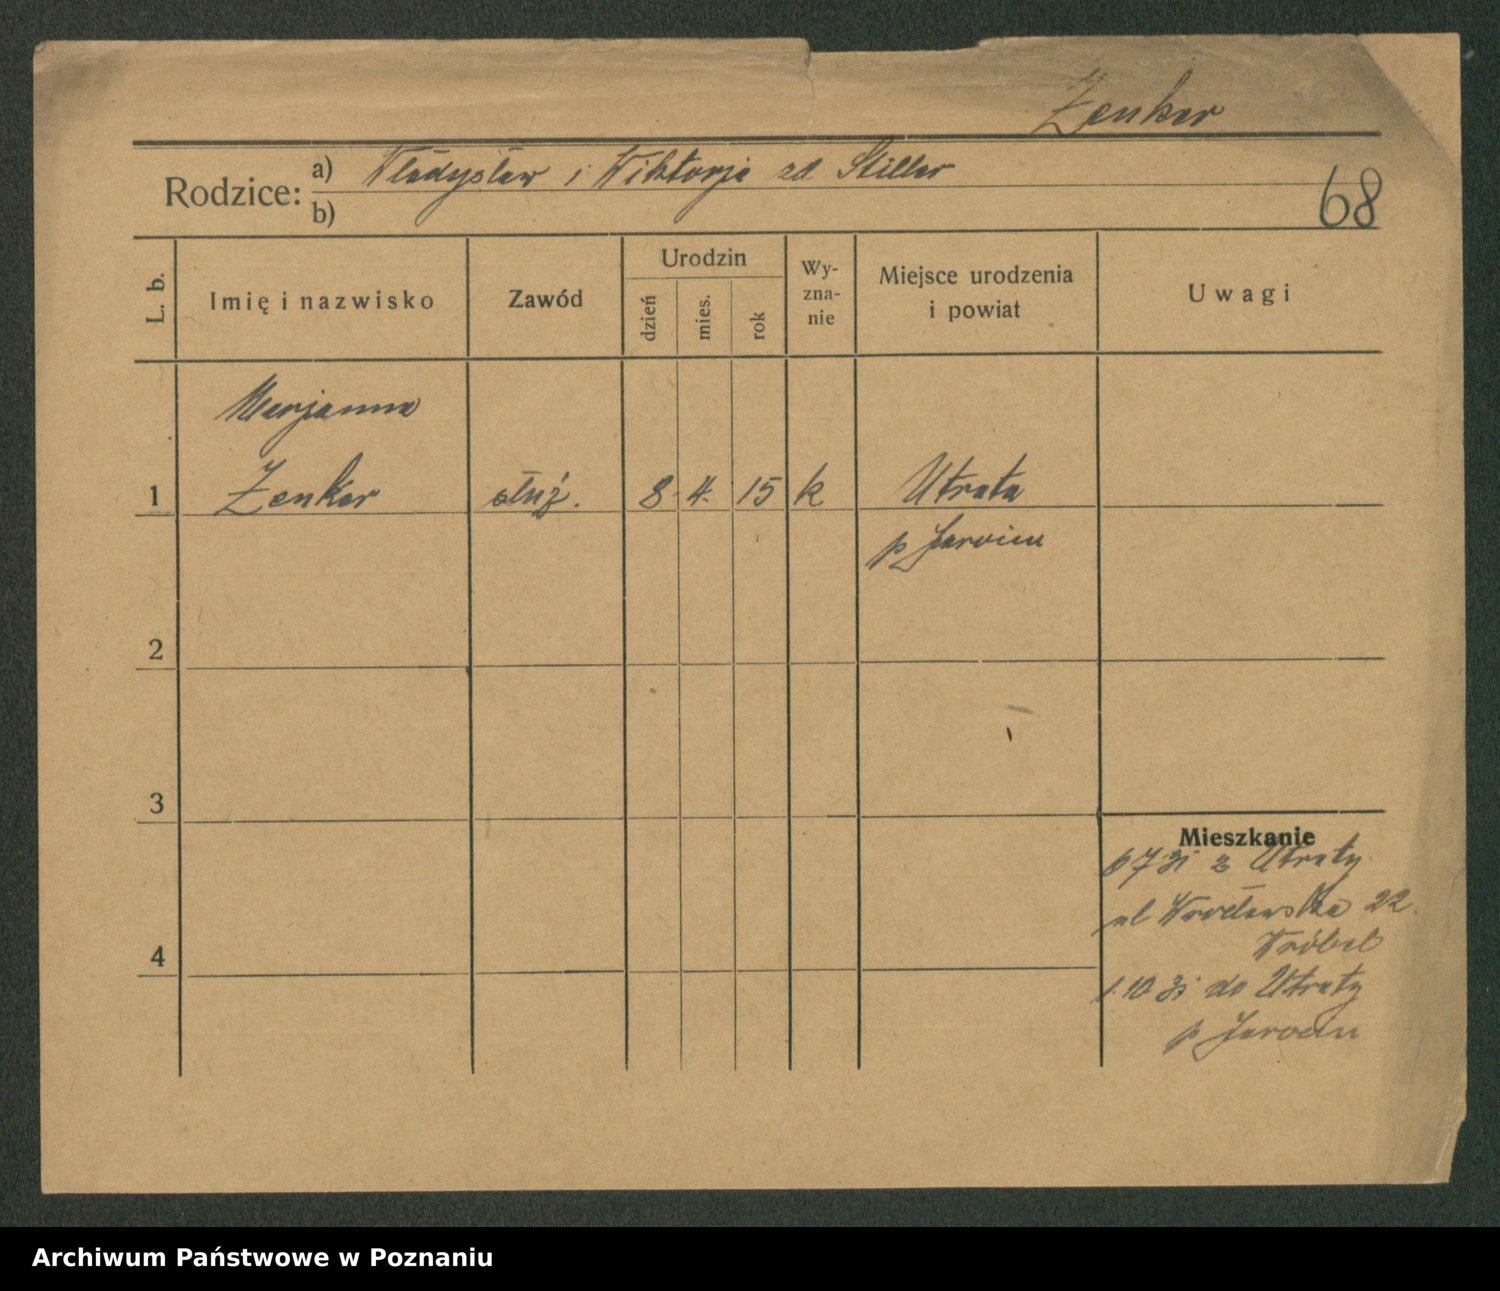 Żenker
Rodzice: a) Władysław i Wiktorja zd Stiller
b)
68
L. b. Imię i nazwisko Zawód Urodzin dzień mies. rok Wy-zna-nie Miejsce urodzenia i powiat Uwagi
Marjanna
1 Żenker służ. 8. 4. 15 k Utrata
p Jarocin
2
3
Mieszkanie
6 7 31 z Utraty
ul Wrocławska 22.
Wróbel
4
1.10 31 do Utraty
p Jarocin
Archiwum Państwowe w Poznaniu